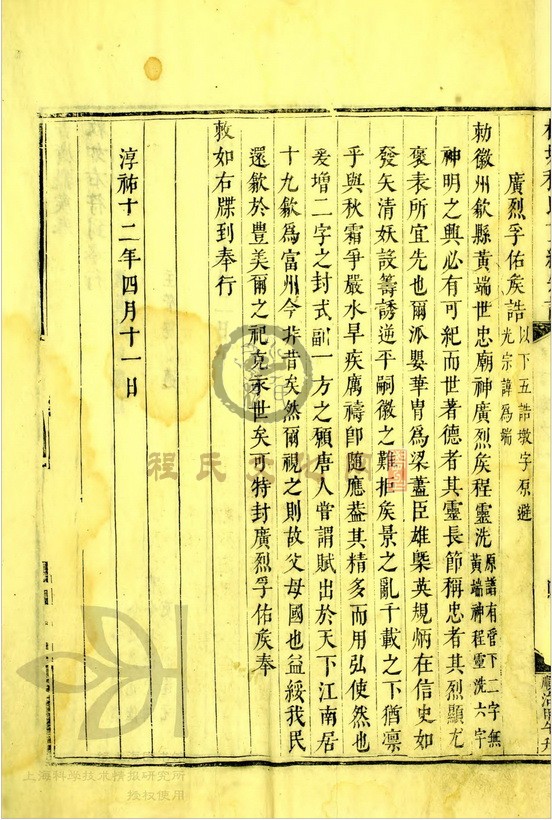 廣烈孚佑矦誥
以下五誥墩字原避
光宗諱為端
勑徽州歙縣黃端世忠廟神廣烈矦程靈洗
原譜有管下二字無
黃端神程靈洗六字
神明之興必有可紀而世著德者其靈長節稱忠者其烈顯尤
褒表所宜先也爾派嬰華胄為梁藎臣雄槩英規炳在信史如
發矢清妖設籌誘逆平嗣徽之難拒矦景之亂千載之下猶凛
乎與秋霜爭嚴水旱疾厲禱卽随應葢其精多而用弘使然也
爰增二字之封式副一方之願唐人嘗謂賦出於天下江南居
十九歙為富州今非昔矣然爾視之則故父母國也益綏我民
還歙於豐美爾之祀克承世矣可特封廣烈孚佑矦奉
敕如右牒到奉行
淳祐十二年四月十一日
順治甲午刋
程氏文化网
上海科学技术情报研究所
授权使用